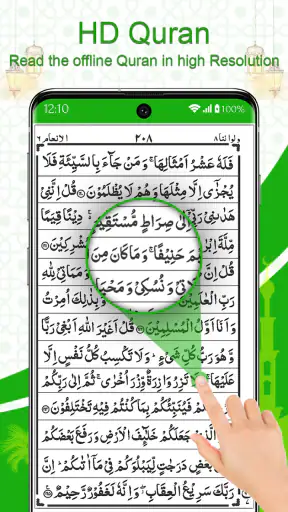 HD Quran
Read the offline Quran in high Resolution
12:10
100%
ولو اننا ٨ ٢٠٨ الانعام ٦
فَلَهٗ عَشْرُ اَمْثَالِهَا ۚ وَمَنْ جَآءَ بِالسَّيِّئَةِ فَلَا
يُجْزٰٓى اِلَّا مِثْلَهَا وَهُمْ لَا يُظْلَمُوْنَ قُلْ اِنَّنِيْ
هَدٰىنِيْ رَبِّيْ اِلٰى صِرَاطٍ مُّسْتَقِيْمٍ ۚ دِيْنًا قِيَمًا
مِّلَّةَ حَنِيْفًا ۚ وَمَا كَانَ مِنَ
قُلْ اِنَّ وَنُسُكِيْ وَمَحْيَا وَمَمَاتِيْ لِلّٰهِ
رَبِّ الْعٰلَمِيْنَ وَبِذٰلِكَ اُمِرْتُ
وَاَنَا اَوَّلُ الْمُسْلِمِيْنَ قُلْ اَغَيْرَ اللّٰهِ اَبْغِيْ رَبًّا
وَّهُوَ رَبُّ كُلِّ شَيْءٍ ؕ وَلَا تَكْسِبُ كُلُّ نَفْسٍ اِلَّا
عَلَيْهَا ۚ وَلَا تَزِرُ وَازِرَةٌ وِّزْرَ اُخْرٰى ۚ ثُمَّ اِلٰى رَبِّكُمْ
فَيُنَبِّئُكُمْ بِمَا كُنْتُمْ فِيْهِ تَخْتَلِفُوْنَ
الَّذِيْ جَعَلَكُمْ خَلٰٓئِفَ الْاَرْضِ وَرَفَعَ بَعْضَكُمْ
بَعْضٍ دَرَجٰتٍ لِّيَبْلُوَكُمْ فِيْ مَآ اٰتٰىكُمْ ؕ اِنَّ
رَبَّكَ سَرِيْعُ الْعِقَابِ ۖ وَاِنَّهٗ لَغَفُوْرٌ رَّحِيْمٌ